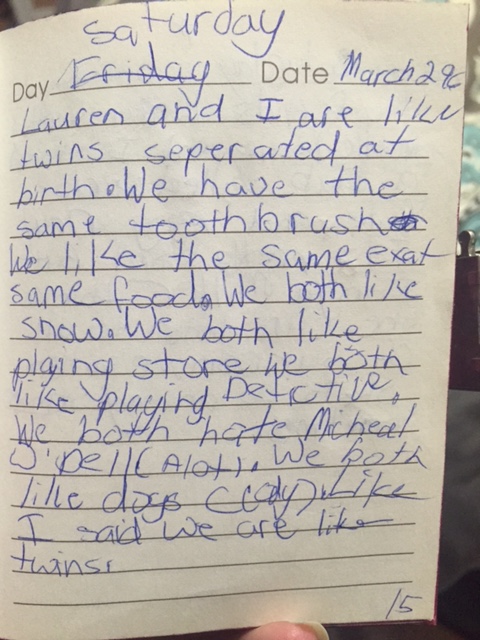 Saturday
Day Friday Date March 29
Lauren and I are like
twins seperated at
birth. We have the
same toothbrush
We like the same exat
same food. We both like
snow. We both like
plging store We both
like playing Detictive.
We both hate Micheal
O'Dell (Alot). We both
like dogs (Cody) Like
I said we are like
twins.
/5